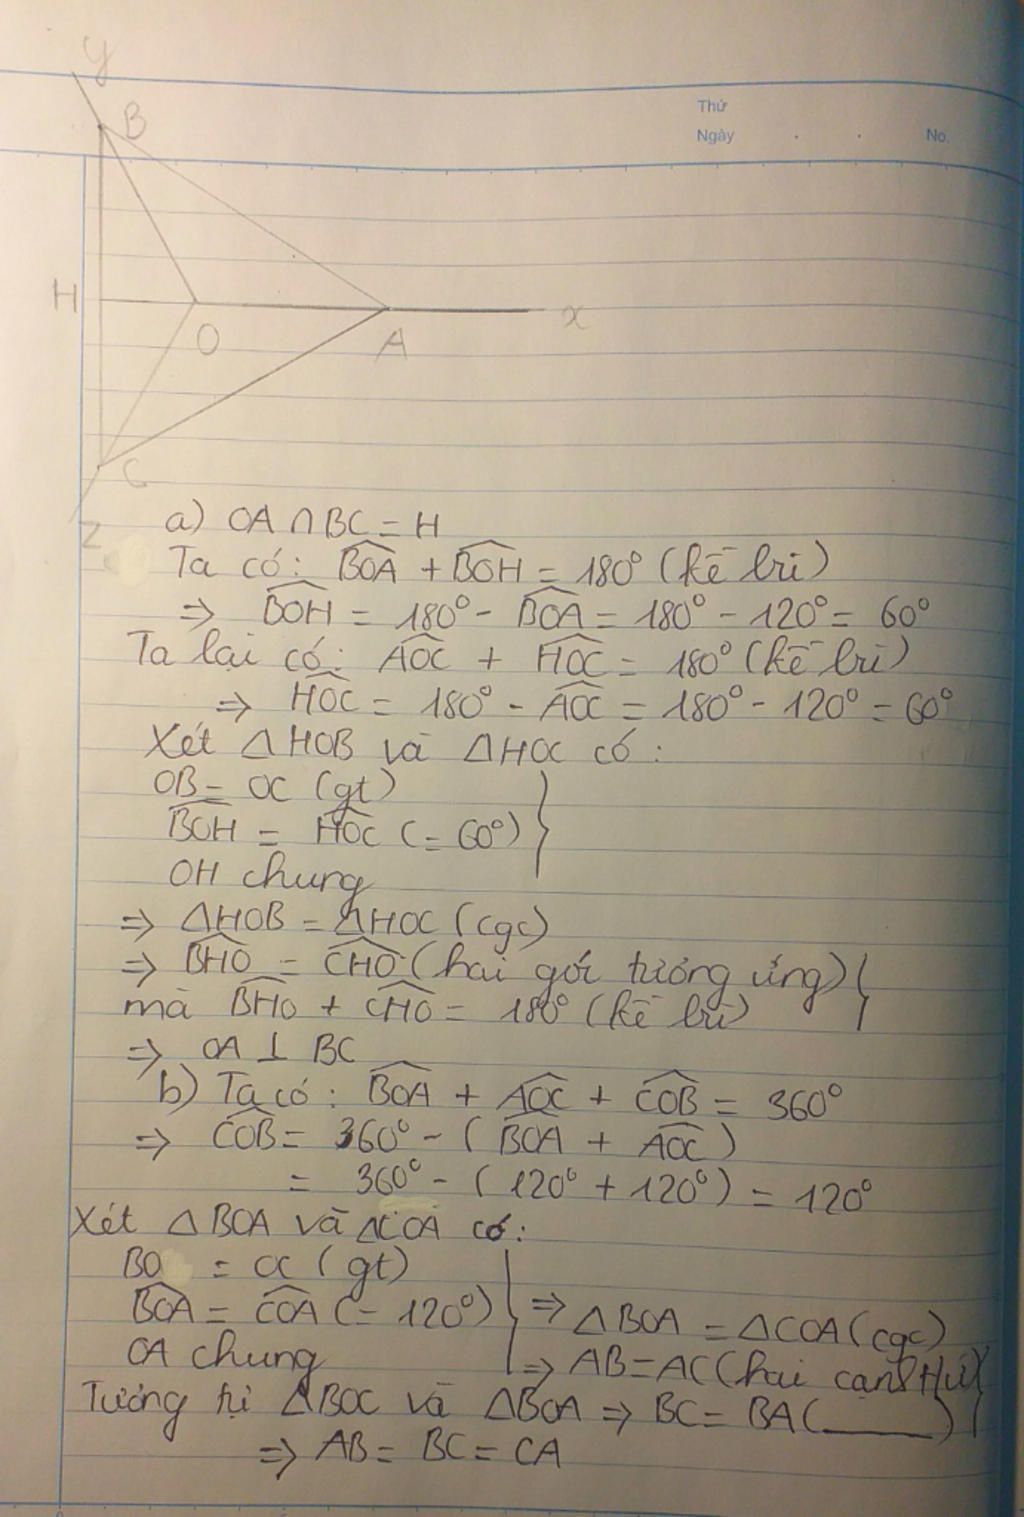 y
B
Thứ
Ngày . . No.
H
O
A
x
C
z
a) OA ∩ BC = H
Ta có: BOA + BOH = 180° (kề bù)
⇒ BOH = 180° - BOA = 180° - 120° = 60°
Ta lại có: AOC + HOC = 180° (kề bù)
⇒ HOC = 180° - AOC = 180° - 120° = 60°
Xét △HOB và △HOC có:
OB = OC (gt)
BOH = HOC (= 60°)
OH chung
⇒ △HOB = △HOC (cgc)
⇒ BHO = CHO (hai góc tương ứng)
mà BHO + CHO = 180° (kề bù)
⇒ OA ⊥ BC
b) Ta có: BOA + AOC + COB = 360°
⇒ COB = 360° - (BOA + AOC)
= 360° - (120° + 120°) = 120°
Xét △BOA và △COA có:
BO = OC (gt)
BOA = COA (= 120°) ⇒ △BOA = △COA (cgc)
OA chung ⇒ AB = AC (hai cạnh tứ)
Tương tự △BOC và △BOA ⇒ BC = BA (____)
⇒ AB = BC = CA